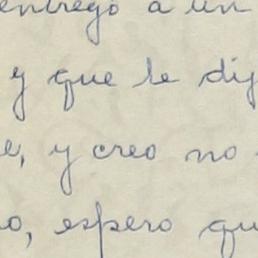 entregó a un
y que le dij
e, y creo no
o, espero qu